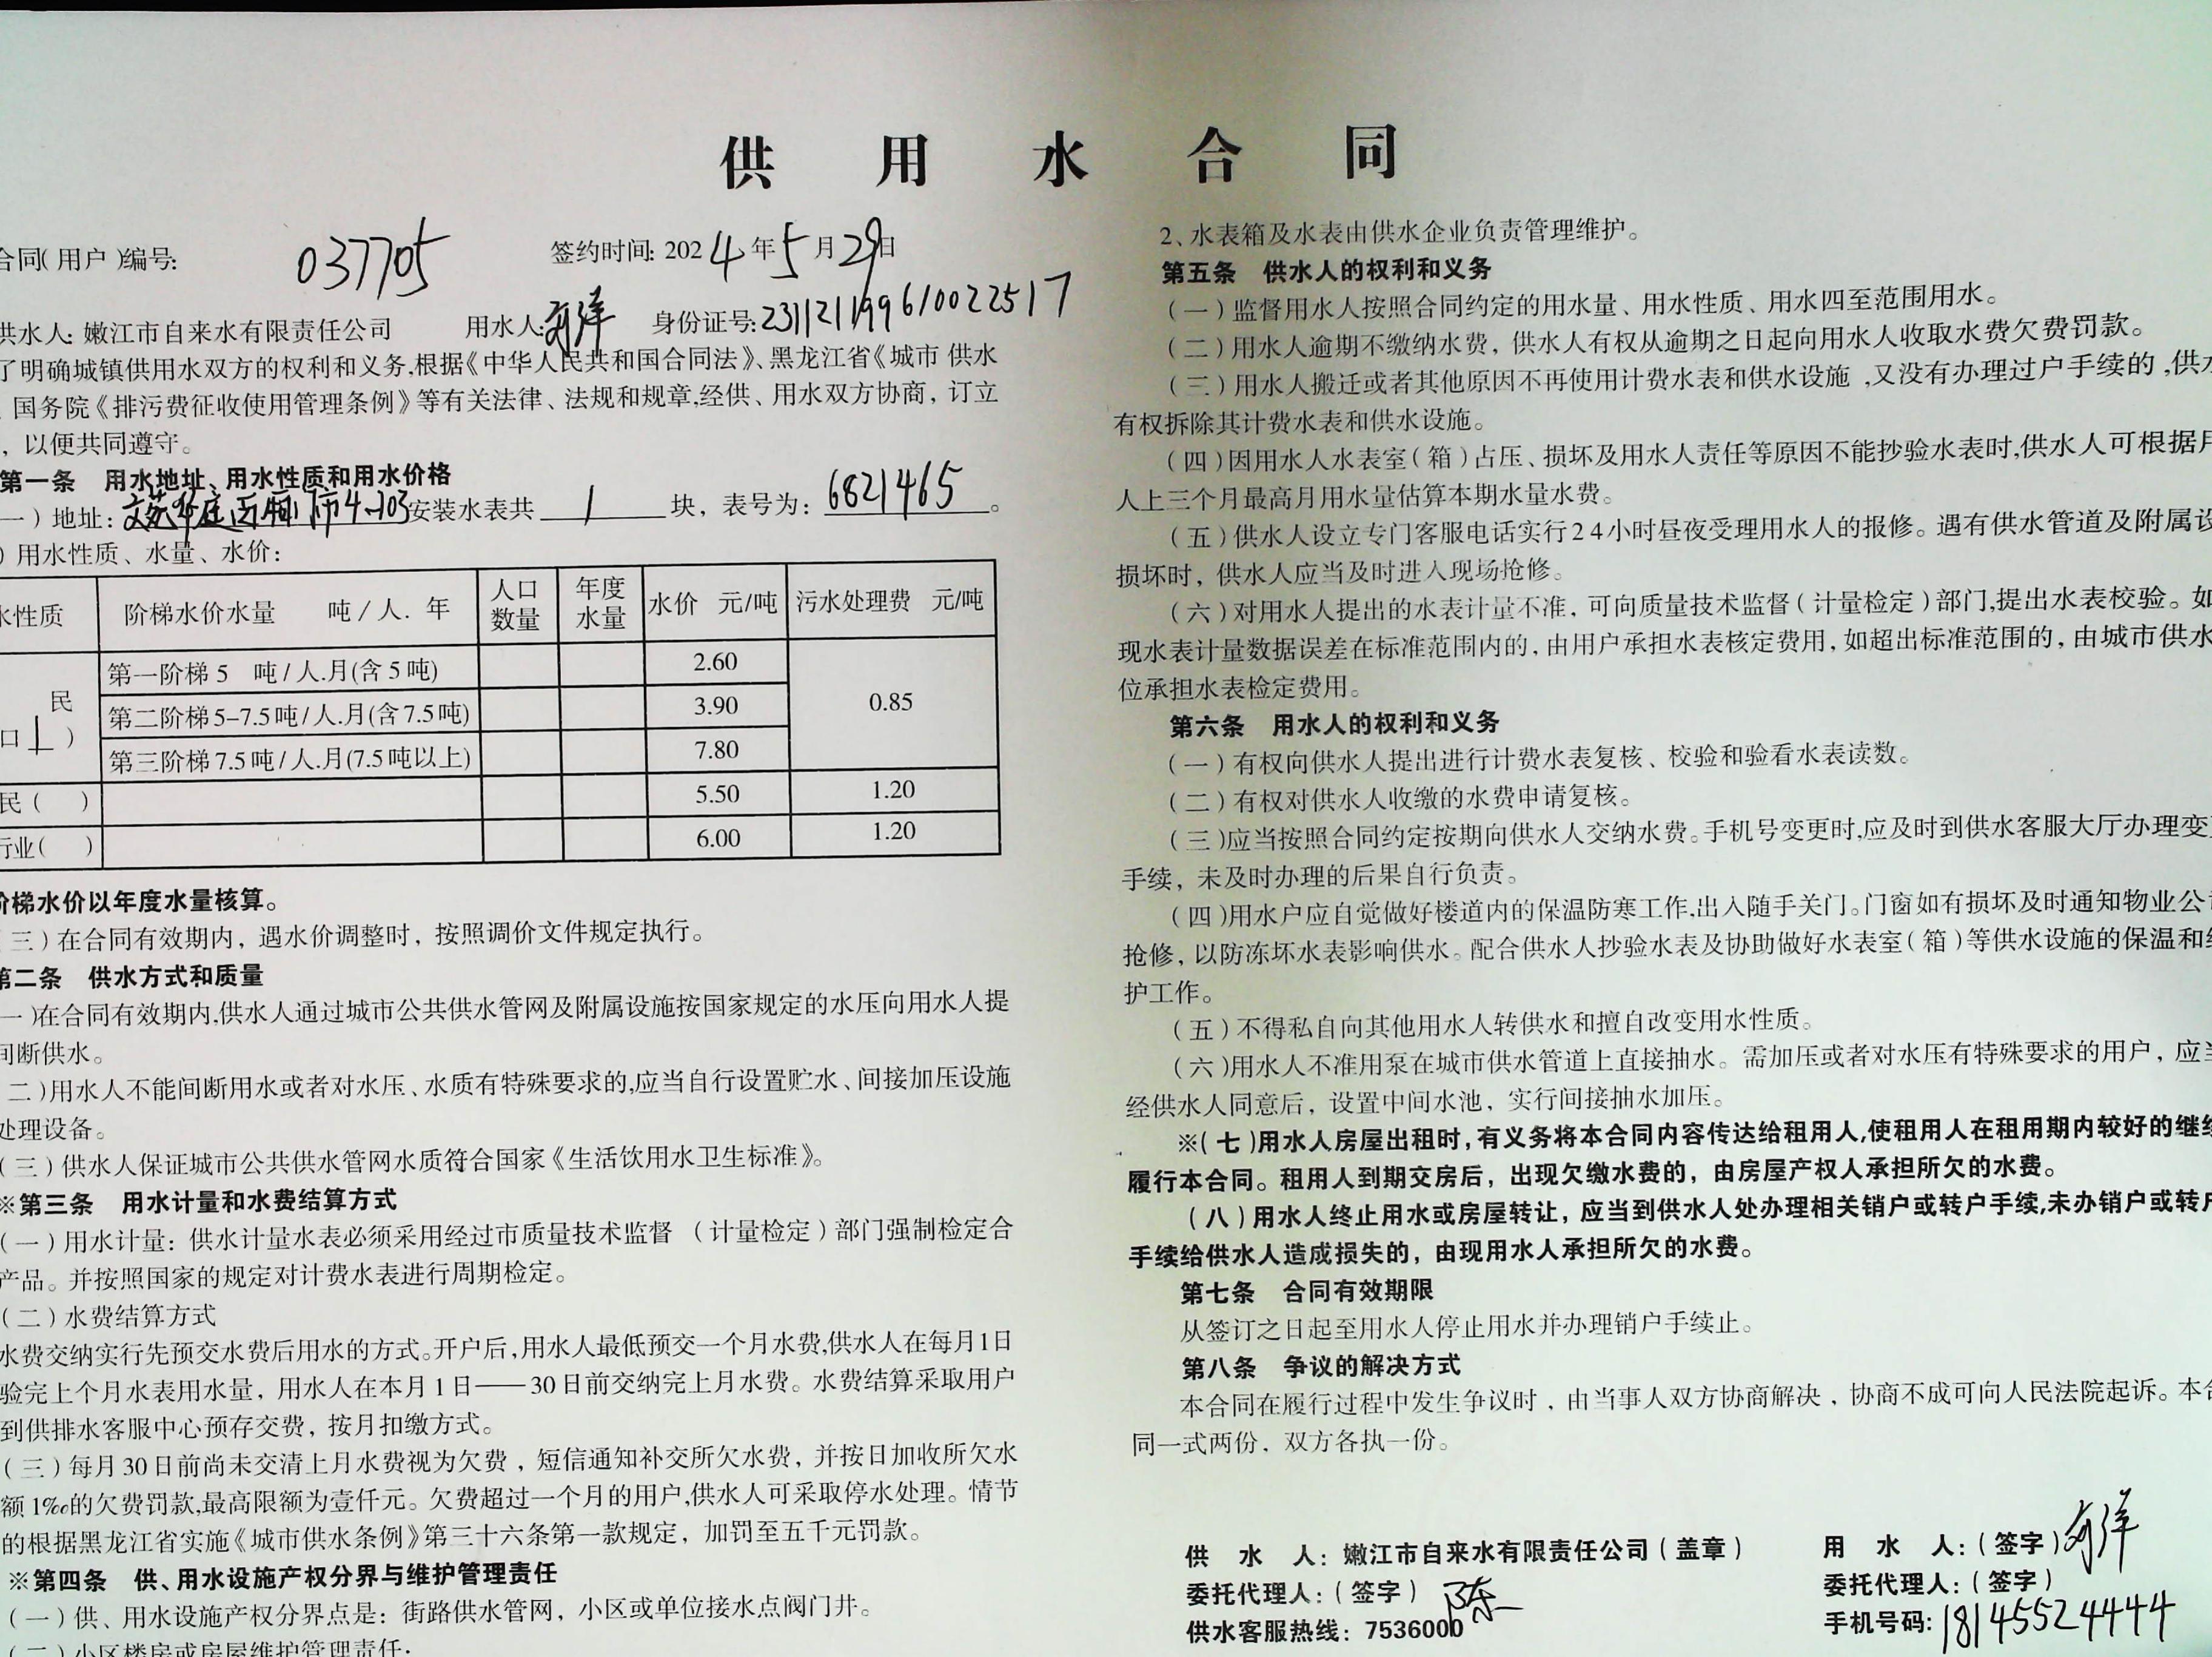 供用水合同
合同(用户)编号: 037705 签约时间: 2024年5月29日
供水人: 嫩江市自来水有限责任公司 用水人: 刘洋 身份证号: 231121199610022517
了明确城镇供用水双方的权利和义务,根据《中华人民共和国合同法》、黑龙江省《城市 供水
、国务院《排污费征收使用管理条例》等有关法律、法规和规章,经供、用水双方协商，订立
，以便共同遵守。
第一条 用水地址、用水性质和用水价格
一）地址: 文苑华庭西厢 4-103 安装水表共 1 块，表号为: 6821465。
）用水性质、水量、水价:
水性质 阶梯水价水量 吨/人.年 人口数量 年度水量 水价 元/吨 污水处理费 元/吨
民
口 1 ）
第一阶梯 5 吨/人.月(含5吨) 2.60
第二阶梯 5–7.5吨/人.月(含7.5吨) 3.90 0.85
第三阶梯 7.5吨/人.月(7.5吨以上) 7.80
民（ ） 5.50 1.20
行业( ) 6.00 1.20
阶梯水价以年度水量核算。
三）在合同有效期内，遇水价调整时，按照调价文件规定执行。
第二条 供水方式和质量
一)在合同有效期内,供水人通过城市公共供水管网及附属设施按国家规定的水压向用水人提
间断供水。
二)用水人不能间断用水或者对水压、水质有特殊要求的,应当自行设置贮水、间接加压设施
处理设备。
(三)供水人保证城市公共供水管网水质符合国家《生活饮用水卫生标准》。
※第三条 用水计量和水费结算方式
(一)用水计量：供水计量水表必须采用经过市质量技术监督 （计量检定）部门强制检定合
产品。并按照国家的规定对计费水表进行周期检定。
(二)水费结算方式
水费交纳实行先预交水费后用水的方式。开户后,用水人最低预交一个月水费,供水人在每月1日
验完上个月水表用水量，用水人在本月1日——30日前交纳完上月水费。水费结算采取用户
到供排水客服中心预存交费，按月扣缴方式。
(三)每月30日前尚未交清上月水费视为欠费，短信通知补交所欠水费，并按日加收所欠水
额1‰的欠费罚款,最高限额为壹仟元。欠费超过一个月的用户,供水人可采取停水处理。情节
的根据黑龙江省实施《城市供水条例》第三十六条第一款规定，加罚至五千元罚款。
※第四条 供、用水设施产权分界与维护管理责任
(一)供、用水设施产权分界点是：街路供水管网，小区或单位接水点阀门井。
(二)小区楼房或房屋维护管理责任:
2、水表箱及水表由供水企业负责管理维护。
第五条 供水人的权利和义务
(一)监督用水人按照合同约定的用水量、用水性质、用水四至范围用水。
(二)用水人逾期不缴纳水费，供水人有权从逾期之日起向用水人收取水费欠费罚款。
(三)用水人搬迁或者其他原因不再使用计费水表和供水设施，又没有办理过户手续的，供水
有权拆除其计费水表和供水设施。
(四)因用水人水表室(箱)占压、损坏及用水人责任等原因不能抄验水表时,供水人可根据用
人上三个月最高月用水量估算本期水量水费。
(五)供水人设立专门客服电话实行24小时昼夜受理用水人的报修。遇有供水管道及附属设
损坏时，供水人应当及时进入现场抢修。
(六)对用水人提出的水表计量不准，可向质量技术监督(计量检定)部门,提出水表校验。如
现水表计量数据误差在标准范围内的，由用户承担水表核定费用，如超出标准范围的，由城市供水
位承担水表检定费用。
第六条 用水人的权利和义务
(一)有权向供水人提出进行计费水表复核、校验和验看水表读数。
(二)有权对供水人收缴的水费申请复核。
(三)应当按照合同约定按期向供水人交纳水费。手机号变更时,应及时到供水客服大厅办理变更
手续，未及时办理的后果自行负责。
(四)用水户应自觉做好楼道内的保温防寒工作,出入随手关门。门窗如有损坏及时通知物业公司
抢修，以防冻坏水表影响供水。配合供水人抄验水表及协助做好水表室(箱)等供水设施的保温和维
护工作。
(五)不得私自向其他用水人转供水和擅自改变用水性质。
(六)用水人不准用泵在城市供水管道上直接抽水。需加压或者对水压有特殊要求的用户，应当
经供水人同意后，设置中间水池，实行间接抽水加压。
※(七)用水人房屋出租时,有义务将本合同内容传达给租用人,使租用人在租用期内较好的继续
履行本合同。租用人到期交房后，出现欠缴水费的，由房屋产权人承担所欠的水费。
(八)用水人终止用水或房屋转让，应当到供水人处办理相关销户或转户手续,未办销户或转户
手续给供水人造成损失的，由现用水人承担所欠的水费。
第七条 合同有效期限
从签订之日起至用水人停止用水并办理销户手续止。
第八条 争议的解决方式
本合同在履行过程中发生争议时，由当事人双方协商解决，协商不成可向人民法院起诉。本合
同一式两份，双方各执一份。
供 水 人: 嫩江市自来水有限责任公司(盖章) 用 水 人:(签字) 刘洋
委托代理人:(签字) 陈 委托代理人:(签字)
供水客服热线: 7536000 手机号码: 18145524444